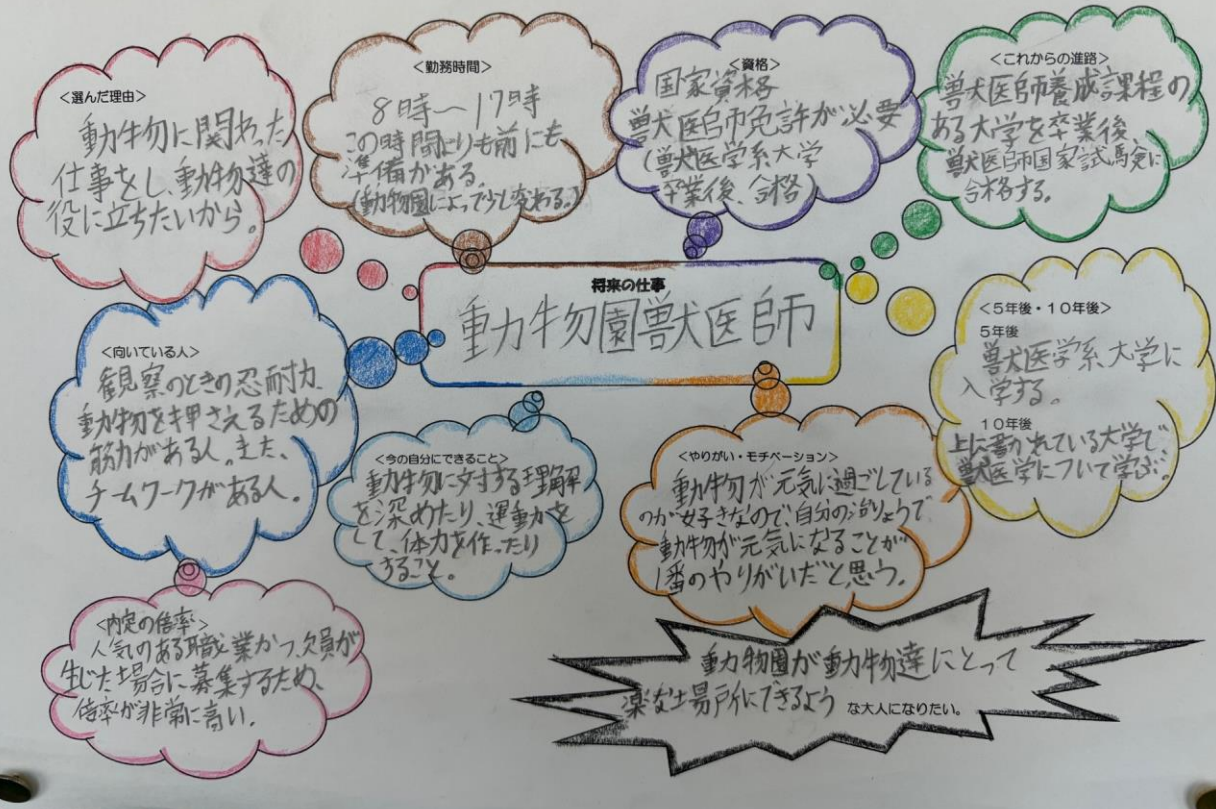 <選んだ理由>
動物に関わった
仕事をし、動物達の
役に立ちたいから。
<勤務時間>
8時〜17時
この時間よりも前にも
準備がある。
(動物園によって少し変わる。)
<資格>
国家資格
獣医師免許が必要
(獣医学系大学
卒業後、合格)
<これからの進路>
獣医師養成課程の
ある大学を卒業後、
獣医師国家試験に
合格する。
将来の仕事
動物園獣医師
<向いている人>
観察のときの忍耐力、
動物を押さえるための
筋力がある人。また、
チームワークがある人。
<今の自分にできること>
動物に対する理解
を深めたり、運動を
して、体力を作ったり
すること。
<やりがい・モチベーション>
動物が元気に過ごしている
のが好きなので、自分の治りょうで
動物が元気になることが
1番のやりがいだと思う。
<5年後・10年後>
5年後
獣医学系大学に
入学する。
10年後
上に書かれている大学で、
獣医学について学ぶ。
<内定の倍率>
人気のある職業かつ、欠員が
生じた場合に募集するため、
倍率が非常に高い。
動物園が動物達にとって
楽な場所にできるよう な大人になりたい。